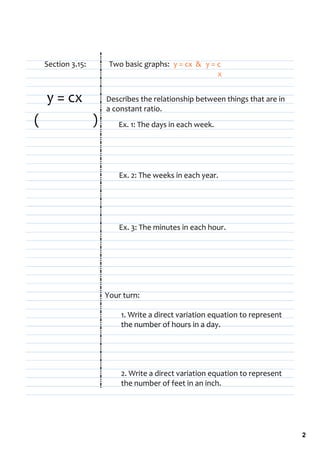 Section 3.15:
Two basic graphs: y = cx & y = c
x
y = cx
( )
Describes the relationship between things that are in
a constant ratio.
Ex. 1: The days in each week.
Ex. 2: The weeks in each year.
Ex. 3: The minutes in each hour.
Your turn:
1. Write a direct variation equation to represent
the number of hours in a day.
2. Write a direct variation equation to represent
the number of feet in an inch.
2